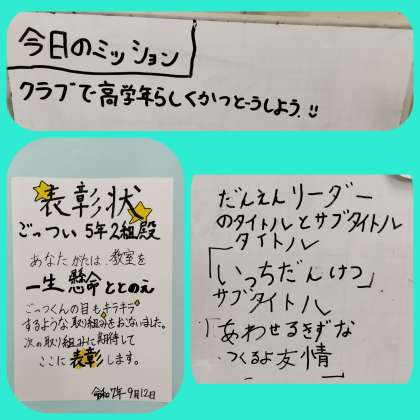 今日のミッション
クラブで高学年らしくかつどうしよう。
表彰状
ごっつい 5年2組殿
あなたがたは、教室を
一生懸命ととのえ
ごっつくんの目もキラキラ
するような取り組みをおこないました。
次の取り組みに期待して
ここに表彰します。
令和7年9月12日
だんえんリーダー
のタイトルとサブタイトル
タイトル
「いっちだんけつ」
サブタイトル
「あわせるきずな
つくるよ友情